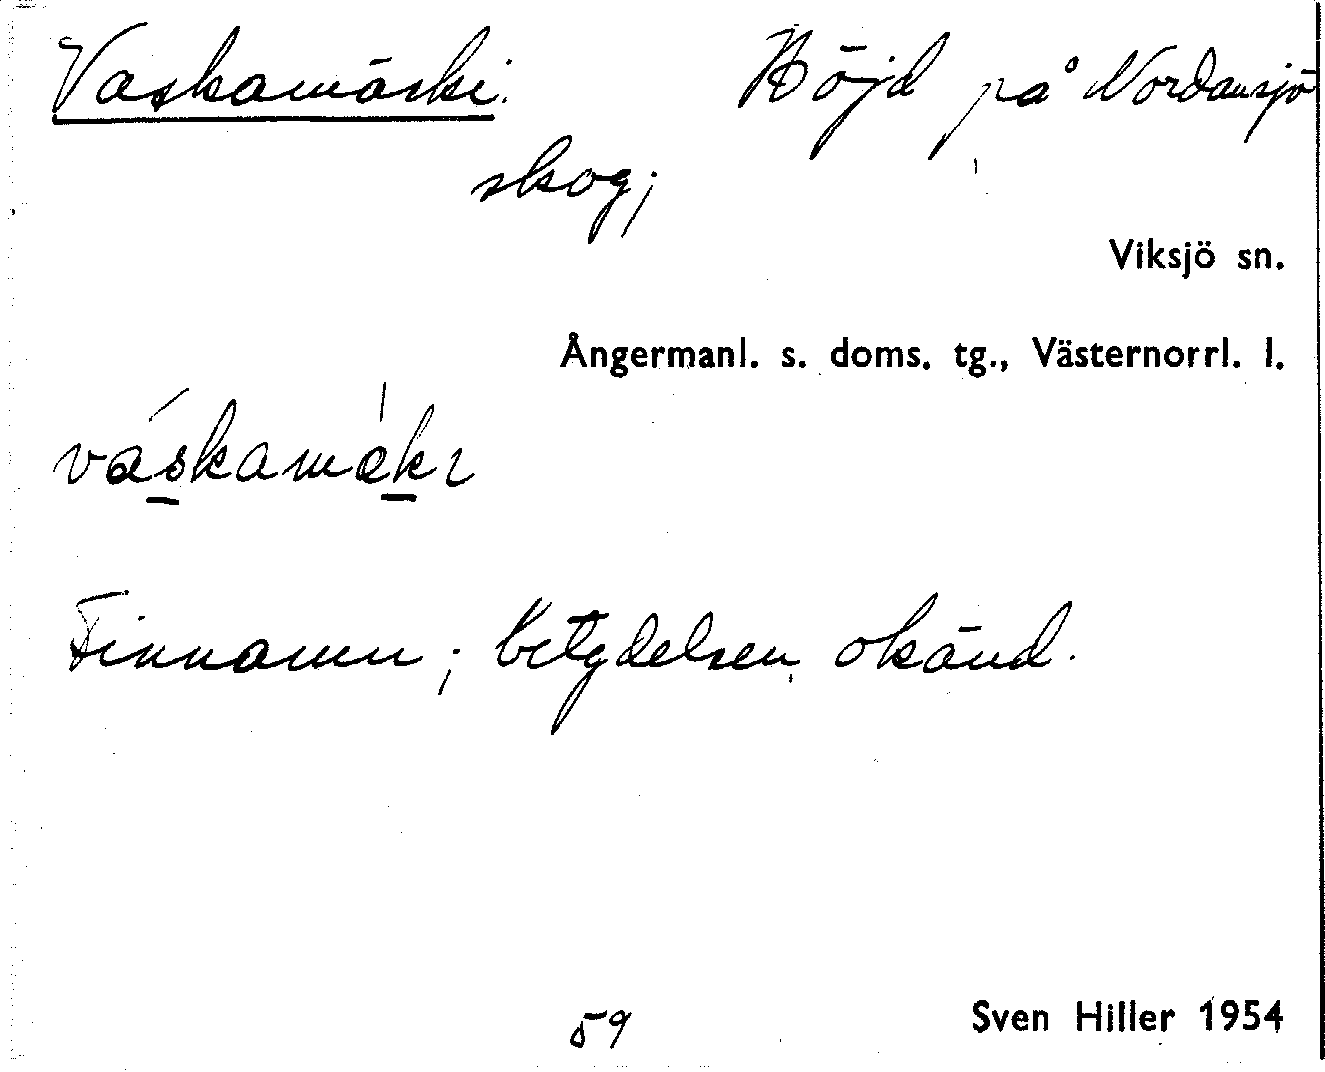 Vaskamäski. Höjd på Nordansjö
skog;
Viksjö sn.
Ångermanl. s. doms. tg., Västernorrl. l.
Finnamn; betydelsen okänd.
59 Sven Hiller 1954